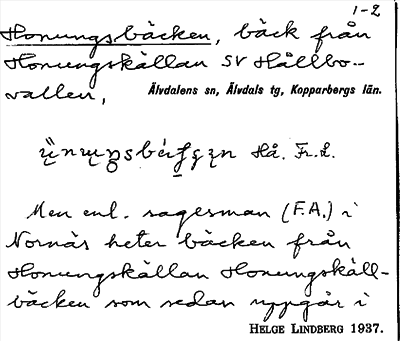 1-2
Honungsbäcken, bäck från
Honungskällan SV Hållbo-
vallen, Älvdalens sn, Älvdals tg, Kopparbergs län.
Hå. Fr. L.
Men enl. sagesman (F.A.) i
Nornäs heter bäcken från
Honungskällan Honungskäll-
bäcken som sedan uppgår i
HELGE LINDBERG 1937.